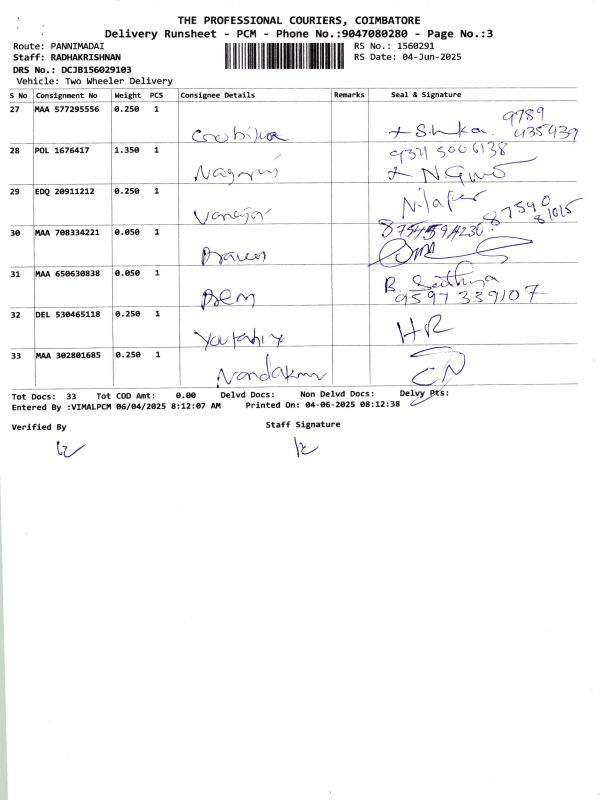 THE PROFESSIONAL COURIERS, COIMBATORE
Delivery Runsheet - PCM - Phone No.:9047080280 - Page No.:3
Route: PANNIMADAI
Staff: RADHAKRISHNAN
DRS No.: DCJB156029103
Vehicle: Two Wheeler Delivery
RS No.: 1560291
RS Date: 04-Jun-2025
S No Consignment No Weight PCS Consignee Details Remarks Seal & Signature
27 MAA 577295556 0.250 1
9789
435439
28 POL 1676417 1.350 1
29 EDQ 20911212 0.250 1
87540
81015
30 MAA 708334221 0.050 1
31 MAA 650630838 0.050 1
B. Sathya
9597339107
32 DEL 530465118 0.250 1
HR
33 MAA 302801685 0.250 1
Nandakumr
Tot Docs: 33 Tot COD Amt: 0.00 Delvd Docs: Non Delvd Docs: Delvy Pts:
Entered By :VIMALPCM 06/04/2025 8:12:07 AM Printed On: 04-06-2025 08:12:38
Verified By Staff Signature